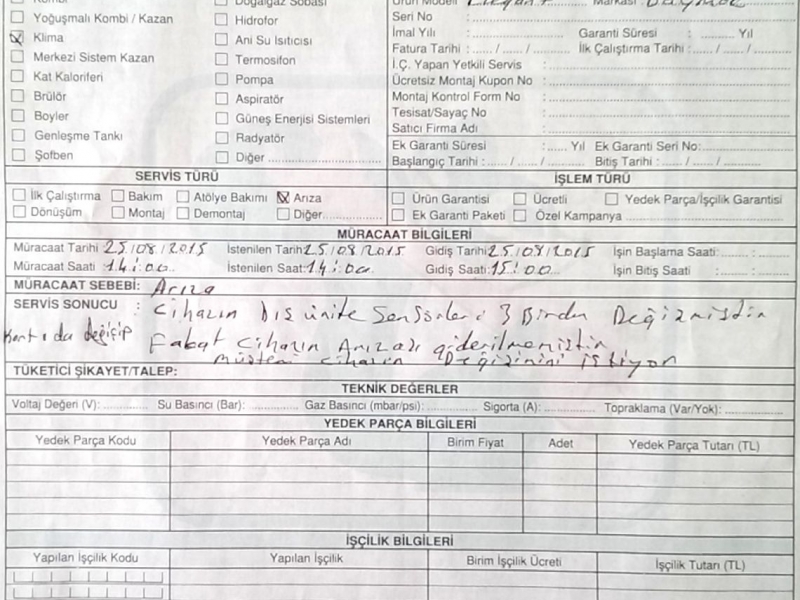 Yoğuşmalı Kombi / Kazan
Klima
Merkezi Sistem Kazan
Kat Kaloriferi
Brülör
Boyler
Genleşme Tankı
Şofben
Doğalgaz Sobası
Hidrofor
Ani Su Isıtıcısı
Termosifon
Pompa
Aspiratör
Güneş Enerjisi Sistemleri
Radyatör
Diğer ..........
Ürün Modeli Markası
Seri No :
İmal Yılı : Garanti Süresi : ........ Yıl
Fatura Tarihi : ..... / ..... / ..... İlk Çalıştırma Tarihi : ..... / ..... / .....
İ.Ç. Yapan Yetkili Servis :
Ücretsiz Montaj Kupon No :
Montaj Kontrol Form No :
Tesisat/Sayaç No :
Satıcı Firma Adı :
Ek Garanti Süresi : ...... Yıl Ek Garanti Seri No:
Başlangıç Tarihi : ..... / ..... / ..... Bitiş Tarihi : ..... / ..... / .....
SERVİS TÜRÜ
İlk Çalıştırma Bakım Atölye Bakımı Arıza
Dönüşüm Montaj Demontaj Diğer..........
İŞLEM TÜRÜ
Ürün Garantisi Ücretli Yedek Parça/İşçilik Garantisi
Ek Garanti Paketi Özel Kampanya ..........
MÜRACAAT BİLGİLERİ
Müracaat Tarihi 25/08/2015 İstenilen Tarih: 25/08/2015 Gidiş Tarihi: 25/08/2015 İşin Başlama Saati : ..... : .....
Müracaat Saati 14:00 İstenilen Saat: 14:00 Gidiş Saati: 15:00 İşin Bitiş Saati : ..... : .....
MÜRACAAT SEBEBİ: Arıza
SERVİS SONUCU : Cihazın Dış ünite Sensörleri 3 Birden Değizmiştin
kartı da değişip Fakat Cihazın Arızası giderilmemiştin
müşteri cihazın Değizinini istiyon
TÜKETİCİ ŞİKAYET/TALEP:
TEKNİK DEĞERLER
Voltaj Değeri (V): .......... Su Basıncı (Bar): .......... Gaz Basıncı (mbar/psi): .......... Sigorta (A): .......... Topraklama (Var/Yok): ..........
YEDEK PARÇA BİLGİLERİ
Yedek Parça Kodu Yedek Parça Adı Birim Fiyat Adet Yedek Parça Tutarı (TL)
İŞÇİLİK BİLGİLERİ
Yapılan İşçilik Kodu Yapılan İşçilik Birim İşçilik Ücreti İşçilik Tutarı (TL)